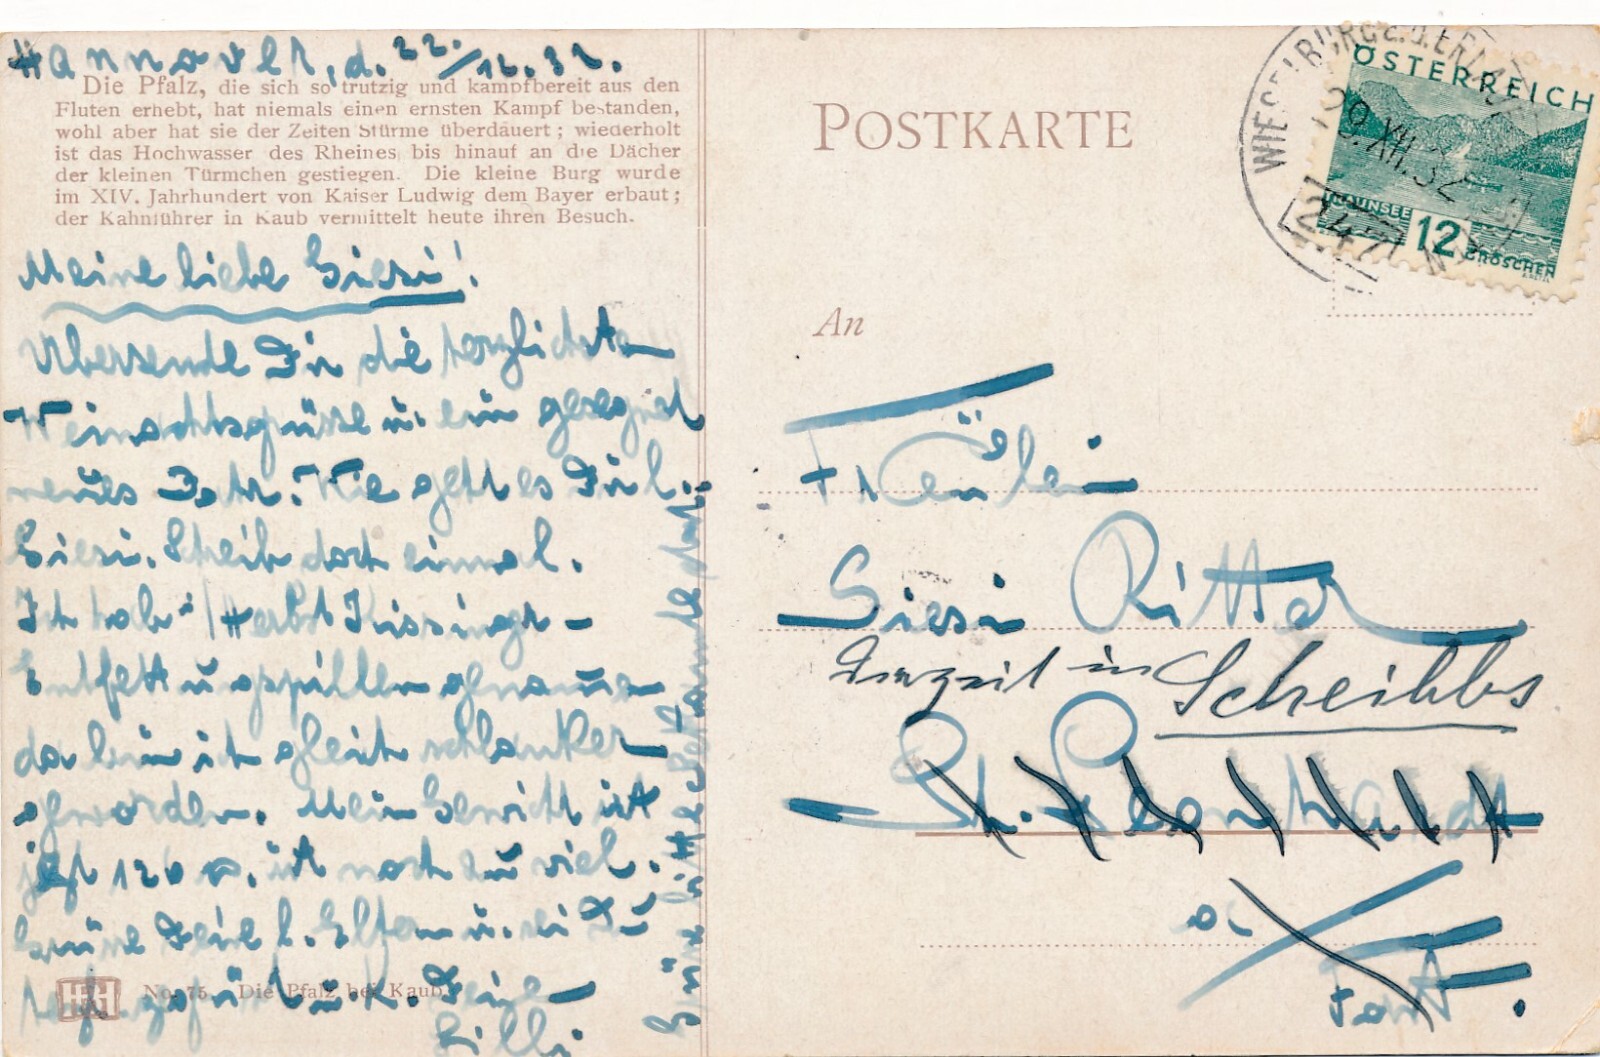 Hannover, d. 22./12.32.
Die Pfalz, die sich so trutzig und kampfbereit aus den
Fluten erhebt, hat niemals einen ernsten Kampf bestanden,
wohl aber hat sie der Zeiten Stürme überdauert; wiederholt
ist das Hochwasser des Rheines bis hinauf an die Dächer
der kleinen Türmchen gestiegen. Die kleine Burg wurde
im XIV. Jahrhundert von Kaiser Ludwig dem Bayer erbaut;
der Kahnführer in Kaub vermittelt heute ihren Besuch.
Meine liebe Giesi!
Übersende Dir die herzlichsten
Weinachtsgrüsse u. ein gesegnet
neues Jahr. Wie geht es Dir l.
Giesi. Schreib doch einmal.
Ich hab i/ Herbst Kissinger-
Entfettungspillen genommen
da bin ich gleich schlanker
geworden. Mein Gewicht ist
jetzt 120 ist noch zu viel.
Grüsse Deine l. Eltern u. sei Du
herzl. gegrüßt u. k. Deine
Gilli
HKH No. 75. Die Pfalz bei Kaub.
Grüsse bitte Bekannte dort.
POSTKARTE
ÖSTERREICH
TRAUNSEE
12 GROSCHEN
WIESELBURG a.d. ERLAF
29.XII.32
An
Fräulein
Giesi Ritter
derzeit in Scheibbs
St. Leonhardt
a/ Forst.